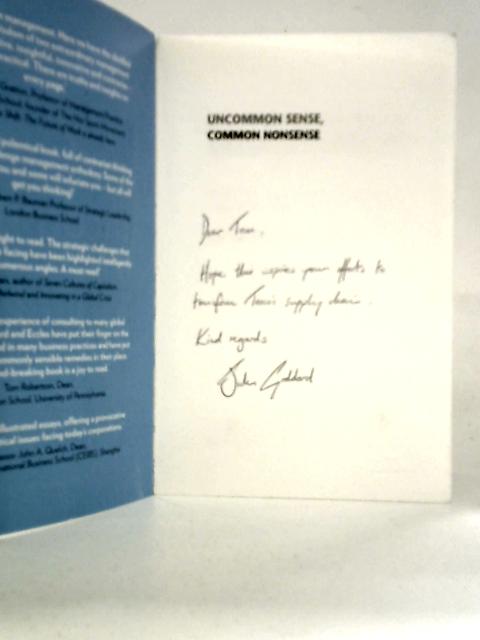 management. Here we have the distilled
wisdom of two extraordinary management
insightful, innovative and
practical. There are truths and insights on
every page.'
Gratton, Professor of Management Practice
School, founder of The Hot Spots Movement
Shift: The Future of Work is already here
potential book, full of contrarian thinking
management orthodoxy. Some of the
and some will infuriate you – but all will
get you thinking!'
P. Bauman Professor of Strategic Leadership,
London Business School
to read. The strategic challenges that
facing have been highlighted intelligently
numerous angles. A must read'
author of Seven Cultures of Capitalism
and Innovating in a Global Crisis
experience of consulting to many global
and Eccles have put their finger on the
in many business practices and have put
commonly sensible remedies in their place
-breaking book is a joy to read.
Tom Robertson, Dean,
School, University of Pennsylvania
illustrated essays, offering a provocative
issues facing today's corporations
John A. Quelch, Dean,
International Business School (CEIBS), Shanghai
UNCOMMON SENSE,
COMMON NONSENSE
Dear
Hope this inspires your efforts to
transform supply chain.
Kind regards
Jules Goddard